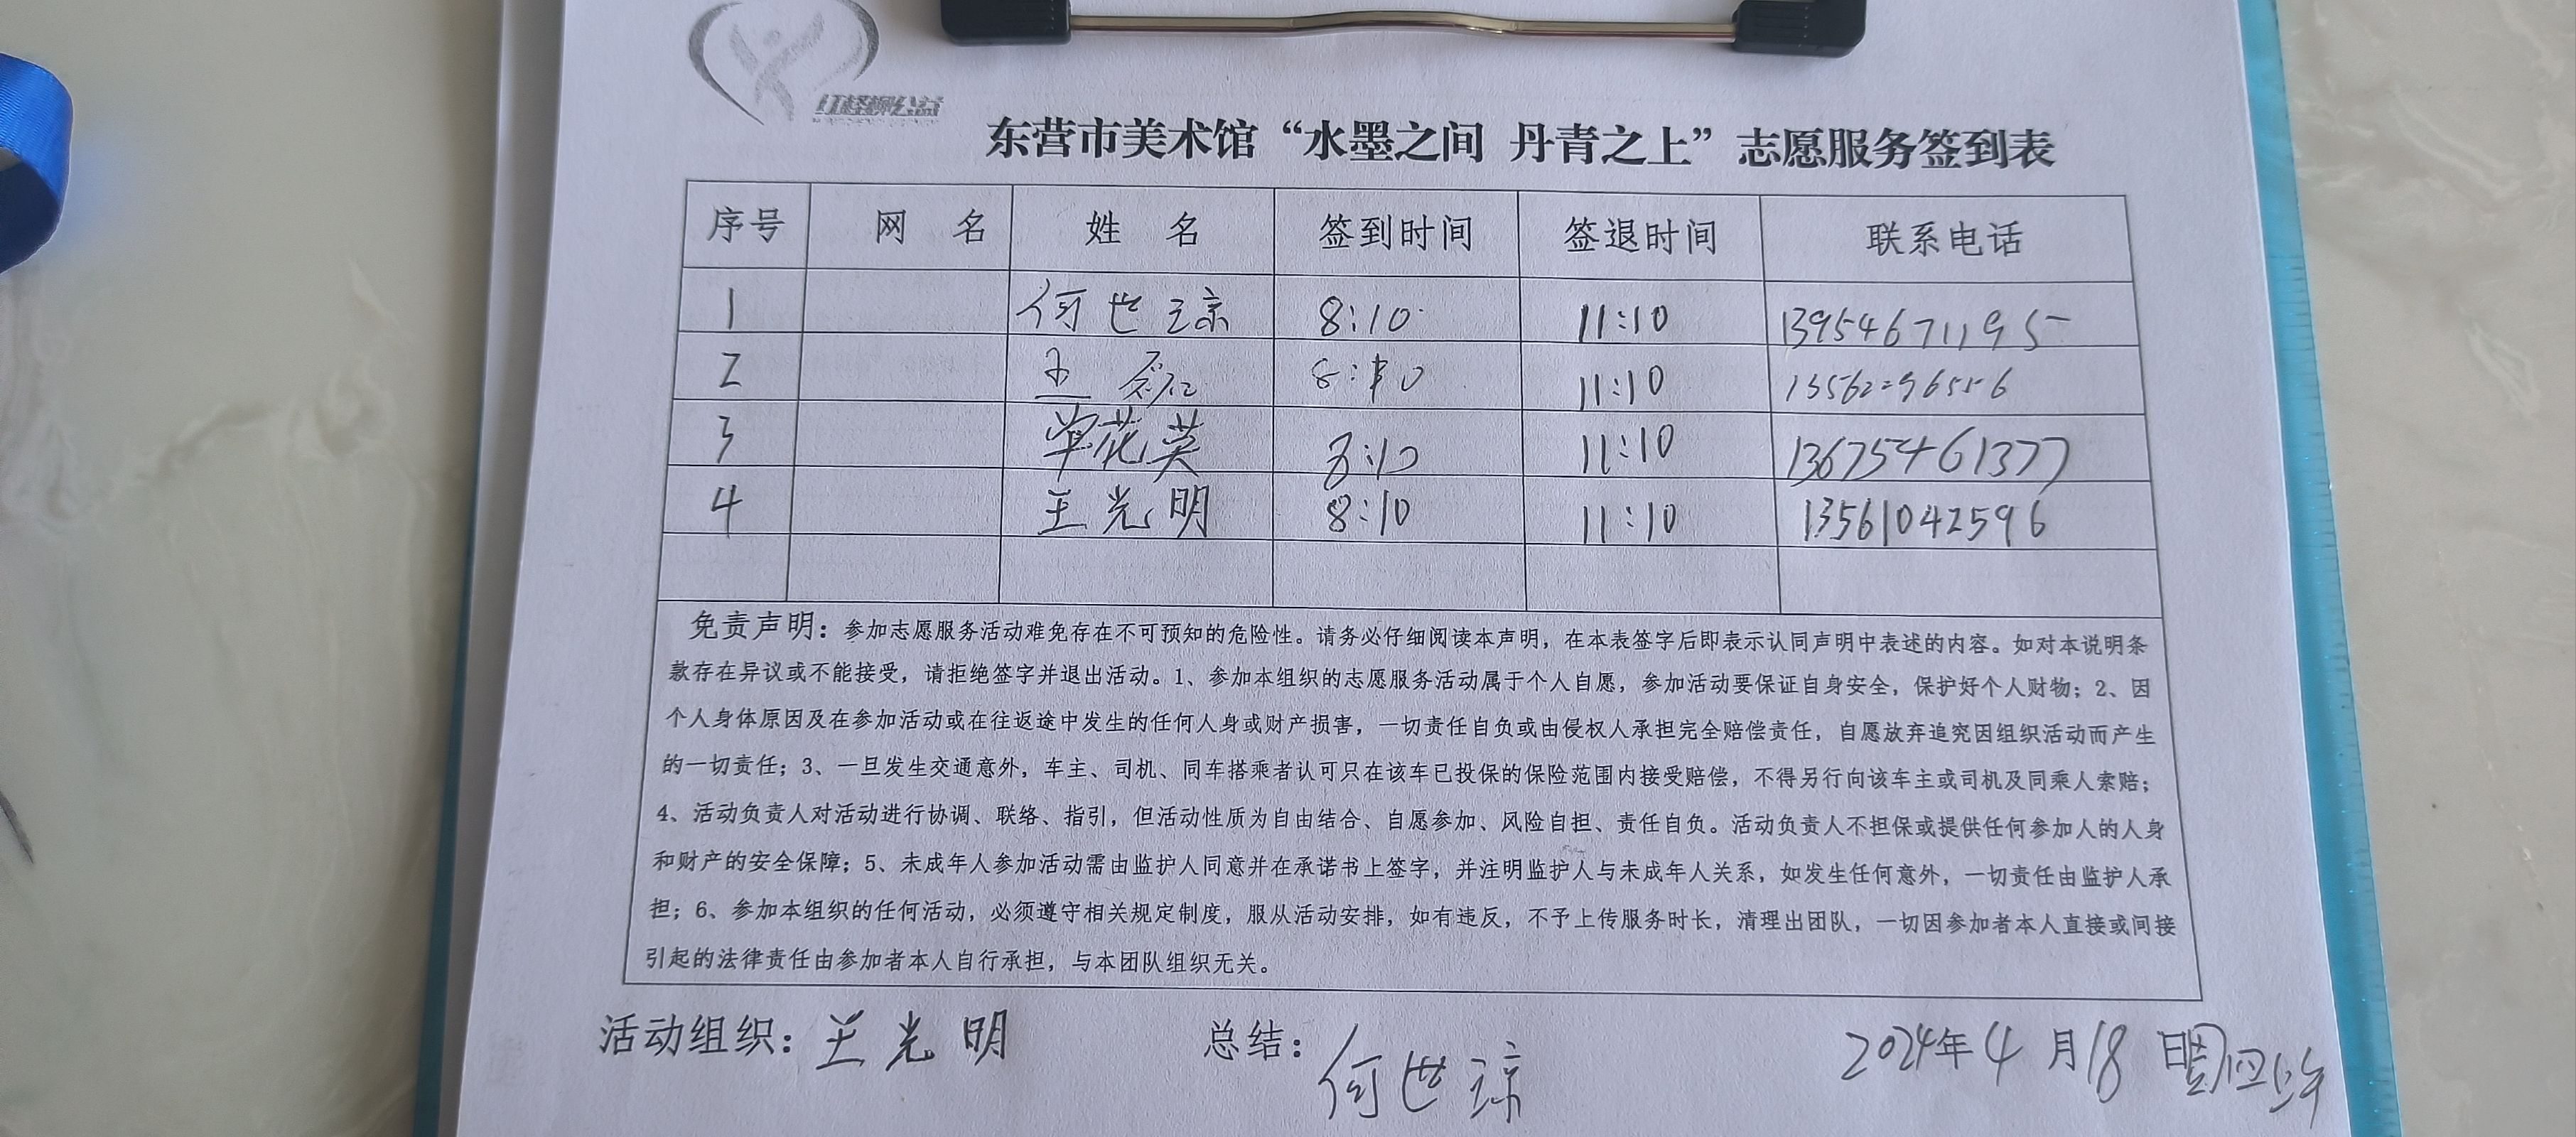 红柽柳公益
东营市美术馆“水墨之间 丹青之上”志愿服务签到表
序号 网 名 姓 名 签到时间 签退时间 联系电话
1 何世琼 8:10 11:10 13954671195
2 8:10 11:10
3 单花英 8:10 11:10 13675461377
4 王光明 8:10 11:10 13561042596
免责声明：参加志愿服务活动难免存在不可预知的危险性。请务必仔细阅读本声明，在本表签字后即表示认同声明中表述的内容。如对本说明条
款存在异议或不能接受，请拒绝签字并退出活动。1、参加本组织的志愿服务活动属于个人自愿，参加活动要保证自身安全，保护好个人财物；2、因
个人身体原因及在参加活动或在往返途中发生的任何人身或财产损害，一切责任自负或由侵权人承担完全赔偿责任，自愿放弃追究因组织活动而产生
的一切责任；3、一旦发生交通意外，车主、司机、同车搭乘者认可只在该车已投保的保险范围内接受赔偿，不得另行向该车主或司机及同乘人索赔；
4、活动负责人对活动进行协调、联络、指引，但活动性质为自由结合、自愿参加、风险自担、责任自负。活动负责人不担保或提供任何参加人的人身
和财产的安全保障；5、未成年人参加活动需由监护人同意并在承诺书上签字，并注明监护人与未成年人关系，如发生任何意外，一切责任由监护人承
担；6、参加本组织的任何活动，必须遵守相关规定制度，服从活动安排，如有违反，不予上传服务时长，清理出团队，一切因参加者本人直接或间接
引起的法律责任由参加者本人自行承担，与本团队组织无关。
活动组织：王光明 总结：何世琼 2024年4月18日周四上午